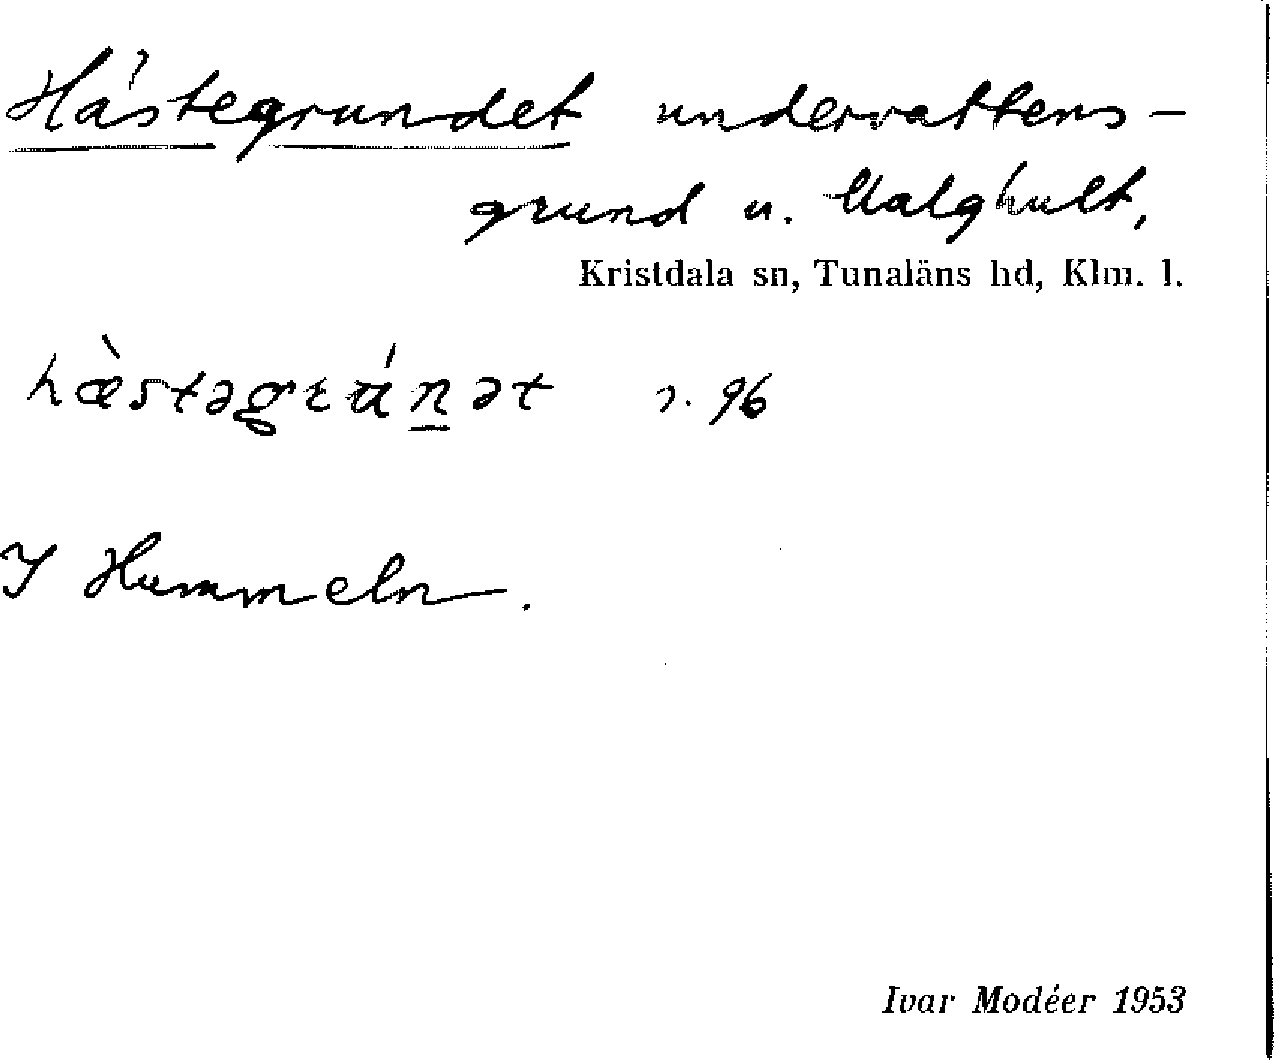 Hästegrundet undervattens-
grund u. Malghult,
Kristdala sn, Tunaläns hd, Klm. l.
hæ̀stəgrún̲ət s. 96
I Hummeln.
Ivar Modéer 1953